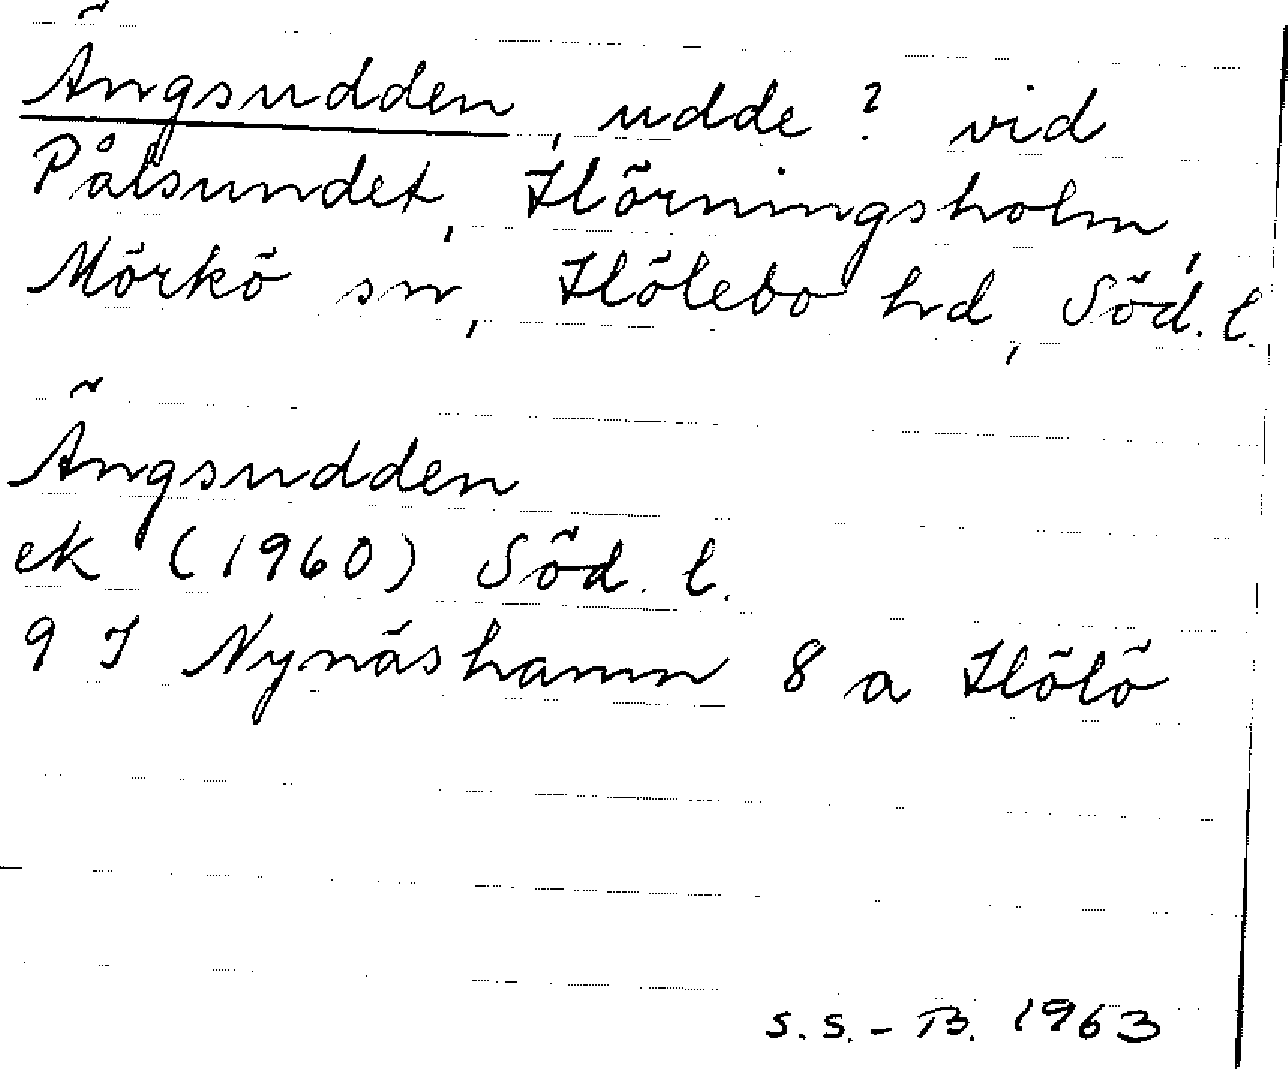 Ängsudden, udde? vid
Pålsundet, Hörningsholm,
Mörkö sn, Hölebo hd, Söd. l.
Ängsudden
ek (1960) Söd. l.
9 I Nynäshamn 8 a Hölö
S.S.-B. 1963